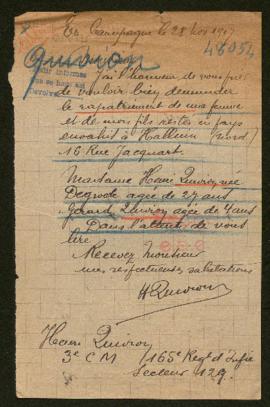 En Campagne le 28 Nov 1917
48054
Quivron
J'ai l'honneur de vous
de vouloir bien demander
le rapatriement de ma femme
et de mon fils restés en pays
envahit à Halluin (Nord)
16 Rue Jacquart
Madame Henri Quivron née
Degrode agée de 27 ans
Gérard Quivron agée de 4 ans
Dans l'attente de vous
lire
Recevez Monsieur
mes respectueuses salutations
HQuivron
Henri Quivron
3e C M / 165e Regt d'Infie
Secteur 129.